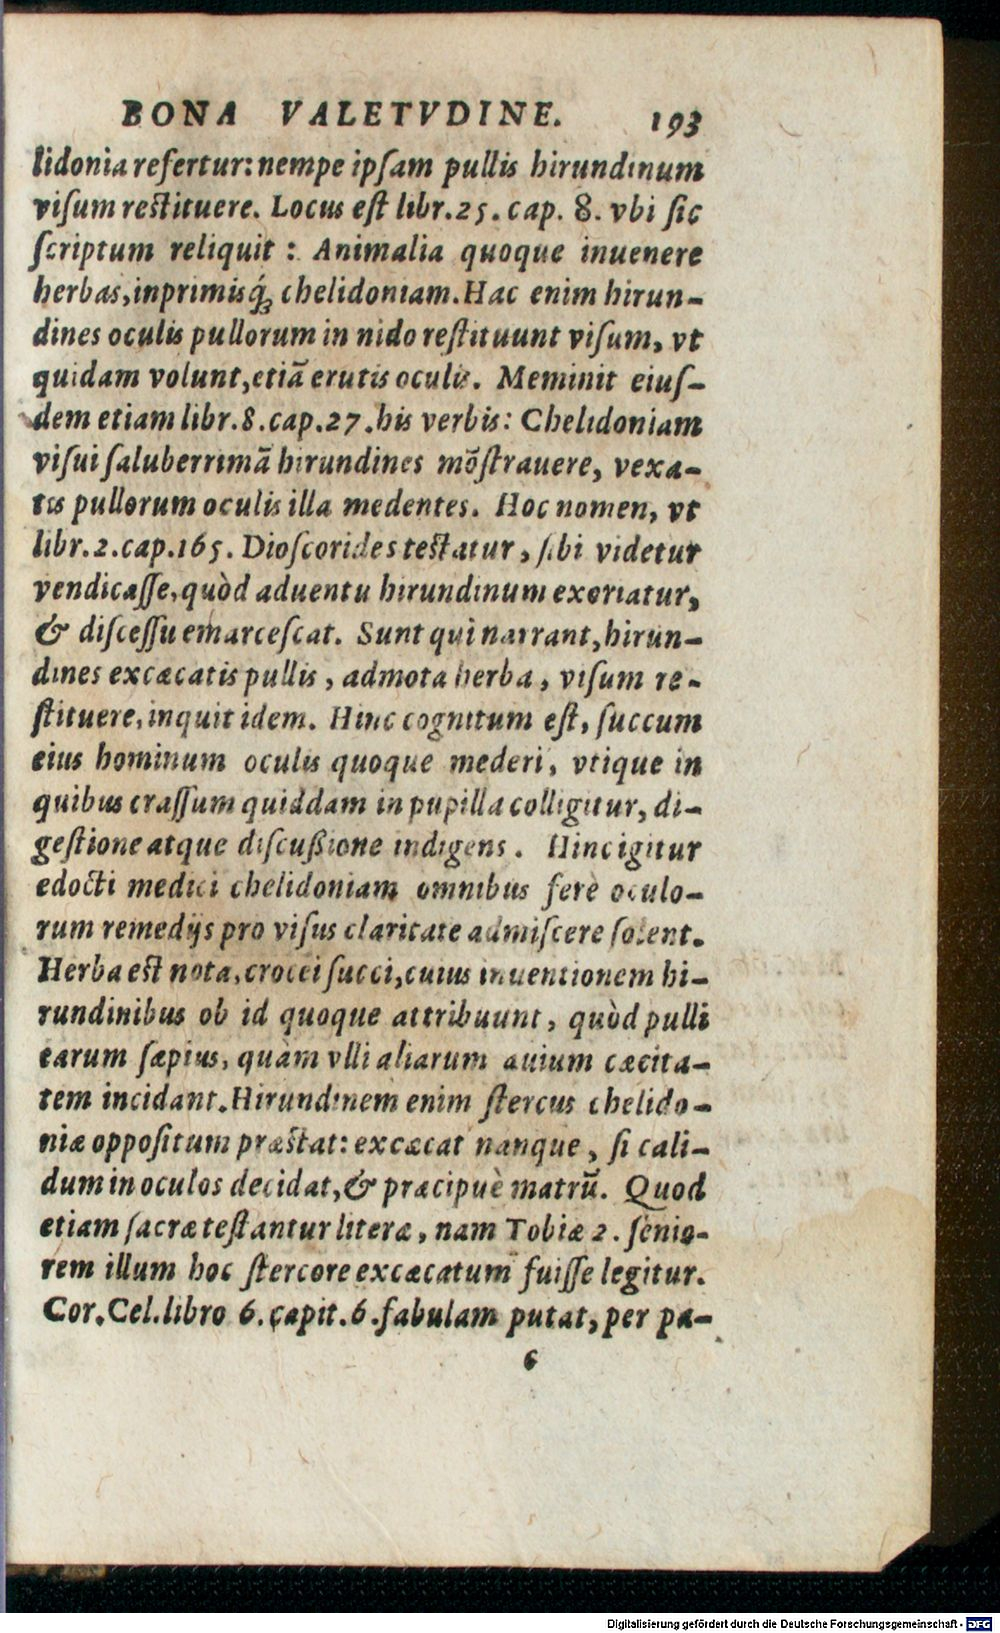 BONA VALETVDINE. 193
lidonia refertur: nempe ipſam pullis hirundinum
viſum reſtituere. Locus eſt libr. 25. cap. 8. vbi ſic
ſcriptum reliquit : Animalia quoque inuenere
herbas, inprimisq́ꝫ chelidoniam. Hac enim hirun-
dines oculis pullorum in nido reſtituunt viſum, vt
quidam volunt, etiã erutis oculis. Meminit eiuſ-
dem etiam libr. 8. cap. 27. his verbis: Chelidoniam
viſui ſaluberrimã hirundines mõſtrauere, vexa-
tis pullorum oculis illa medentes. Hoc nomen, vt
libr. 2. cap. 165. Dioſcorides teſtatur, ſibi videtur
vendicaſſe, quòd aduentu hirundinum exoriatur,
& diſceſſu emarceſcat. Sunt qui narrant, hirun-
dines excæcatis pullis, admota herba, viſum re-
ſtituere, inquit idem. Hinc cognitum eſt, ſuccum
eius hominum oculis quoque mederi, vtique in
quibus craſſum quiddam in pupilla colligitur, di-
geſtione atque diſcuſsione indigens. Hinc igitur
edocti medici chelidoniam omnibus ferè oculo-
rum remedijs pro viſus claritate admiſcere ſolent.
Herba eſt nota, crocei ſucci, cuius inuentionem hi-
rundinibus ob id quoque attribuunt, quòd pulli
earum ſæpius, quàm vlli aliarum auium cæcita-
tem incidant. Hirundinem enim ſtercus chelido-
niæ oppoſitum præſtat: excæcat nanque, ſi cali-
dum in oculos decidat, & præcipuè matrũ. Quod
etiam ſacræ teſtantur literæ, nam Tobiæ 2. ſenio-
rem illum hoc ſtercore excæcatum fuiſſe legitur.
Cor. Cel. libro 6. capit. 6. fabulam putat, per pa-
6
Digitalisierung gefördert durch die Deutsche Forschungsgemeinschaft - DFG